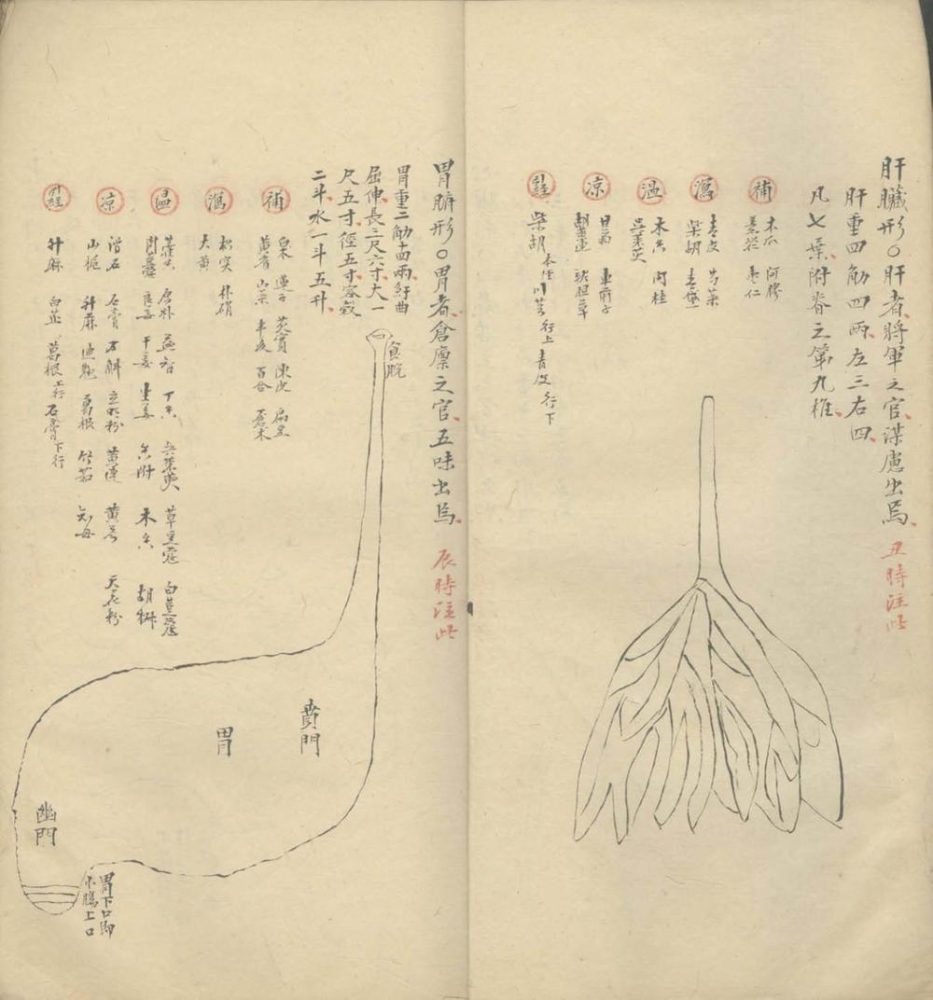 肝臟形○肝者將軍之官謀慮出焉 丑時注此
肝重四觔四兩左三右四
凡七葉附脊之第九椎
補
木瓜 阿膠
棗仁
瀉
青皮 芍藥
柴胡 青黛
溫
木香 肉桂
吳茱萸
凉
甘菊 車前子
經
柴胡 本經 川芎 行上 青皮 行下
胃腑形○胃者倉廩之官五味出焉 辰時注此
胃重二觔十四兩紆曲
屈伸長二尺六寸大一
尺五寸徑五寸容穀
二斗水一斗五升
補
蓮子 芡實 陳皮 扁豆
黃耆 山藥 半夏 百合 蒼木
瀉
枳實 朴硝
大黃
溫
藿香 厚朴 益智 丁香 吳茱萸 草豆蔻 白豆蔻
肉蔻 良姜 干姜 生姜 香附 木香 胡椒
凉
滑石 石膏 石斛 黃連 黃芩 天花粉
山梔 升麻 連翹 葛根 竹茹 知母
升經
升麻 白芷 葛根 上行 石膏 下行
食脘
賁門
胃
幽門
胃下口即
小腸上口